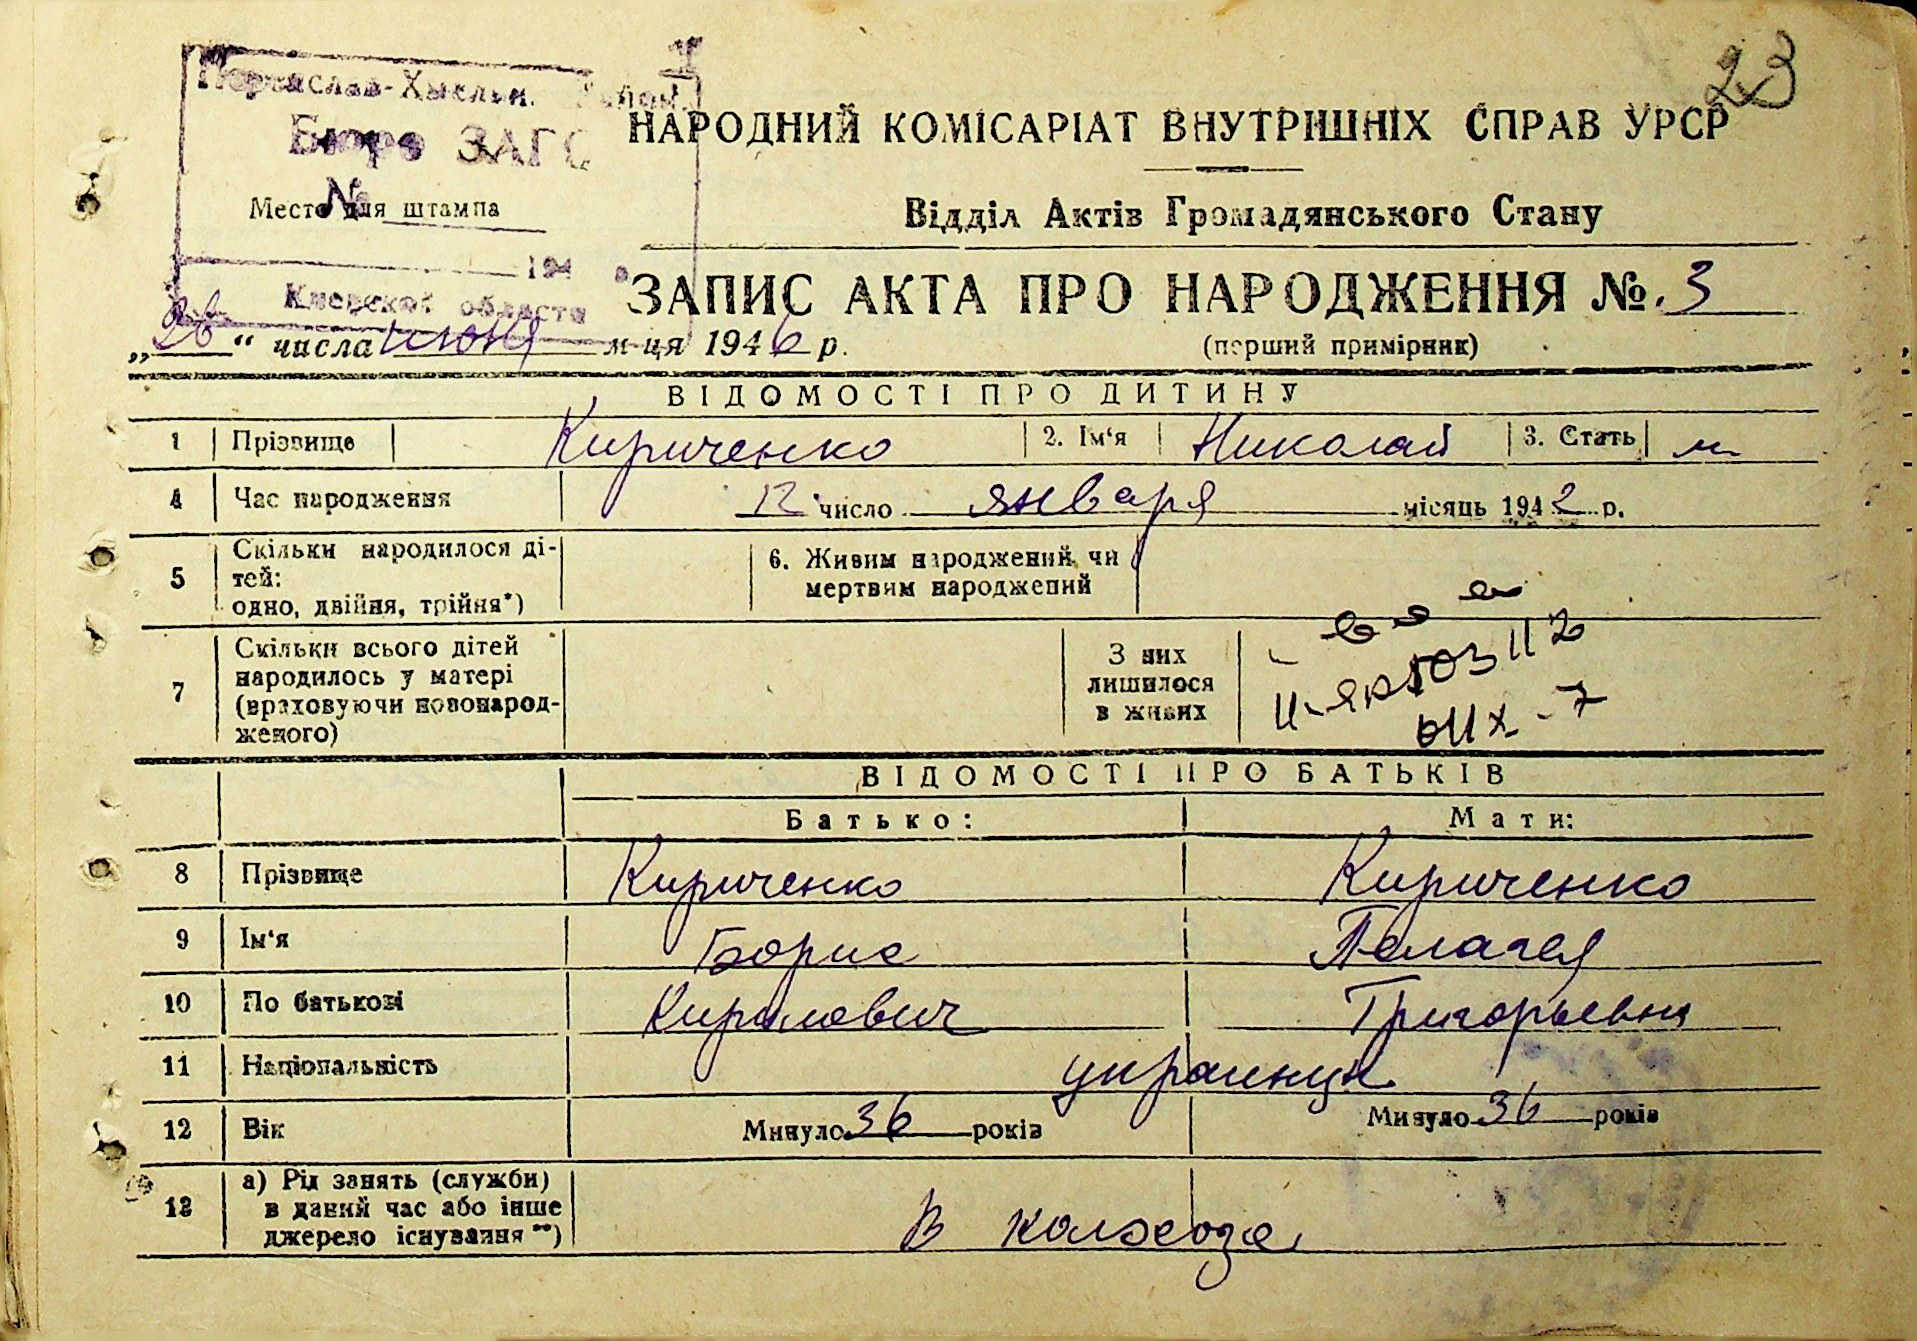 23
Переяслав-Хмельн. Район.
Бюро ЗАГС
№
Место для штампа
194
Киевской области
НАРОДНИЙ КОМІСАРІАТ ВНУТРІШНІХ СПРАВ УРСР
Відділ Актів Громадянського Стану
ЗАПИС АКТА ПРО НАРОДЖЕННЯ №. 3
„26“ числа июня м-ця 1946 р.
(перший примірник)
ВІДОМОСТІ ПРО ДИТИНУ
1 Прізвище Кириченко 2. Ім‘я Николай 3. Стать м
4 Час народження 12 число января місяць 1942 р.
5 Скільки народилося ді-
тей:
одно, двійня, трійня*)
6. Живим народжений чи
мертвим народжений
7 Скільки всього дітей
народилось у матері
(враховуючи новонарод-
женого)
З них
лишилося
в живих
ВІДОМОСТІ ПРО БАТЬКІВ
Батько: Мати:
8 Прізвище Кириченко Кириченко
9 Ім‘я Борис Пелагея
10 По батькові Кирилович Григорьевна
11 Національність украинцы
12 Вік Минуло 36 років Минуло 36 років
13 а) Рід занять (служби)
в даний час або інше
джерело існування **)
В колхозе